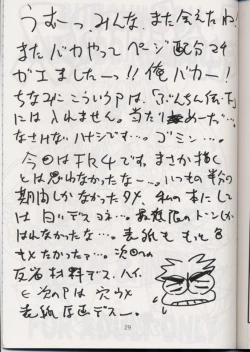 うむーっ、みんな、また会えたね
またバカやって ページ配分マチ
ガエましたーっ!! 俺バカー!
ちなみにこういうPは、「ぶんちん伝」
には入れません。当たり めーだ…。
なさけないハナシです…。ゴミン…。
今回はFR4です。まさか描く
とは思わなかったなー…。いつもの半分の
期間しかなかったタメ、私の本にして
は白いデスコネ…。最低限のトーンしか
はれなかったな…。表紙ももっと色
をメたかったデ…。次回への
反省材料デス。ハイ。
∈次のPは穴ウメ
表紙原画デスー。
29